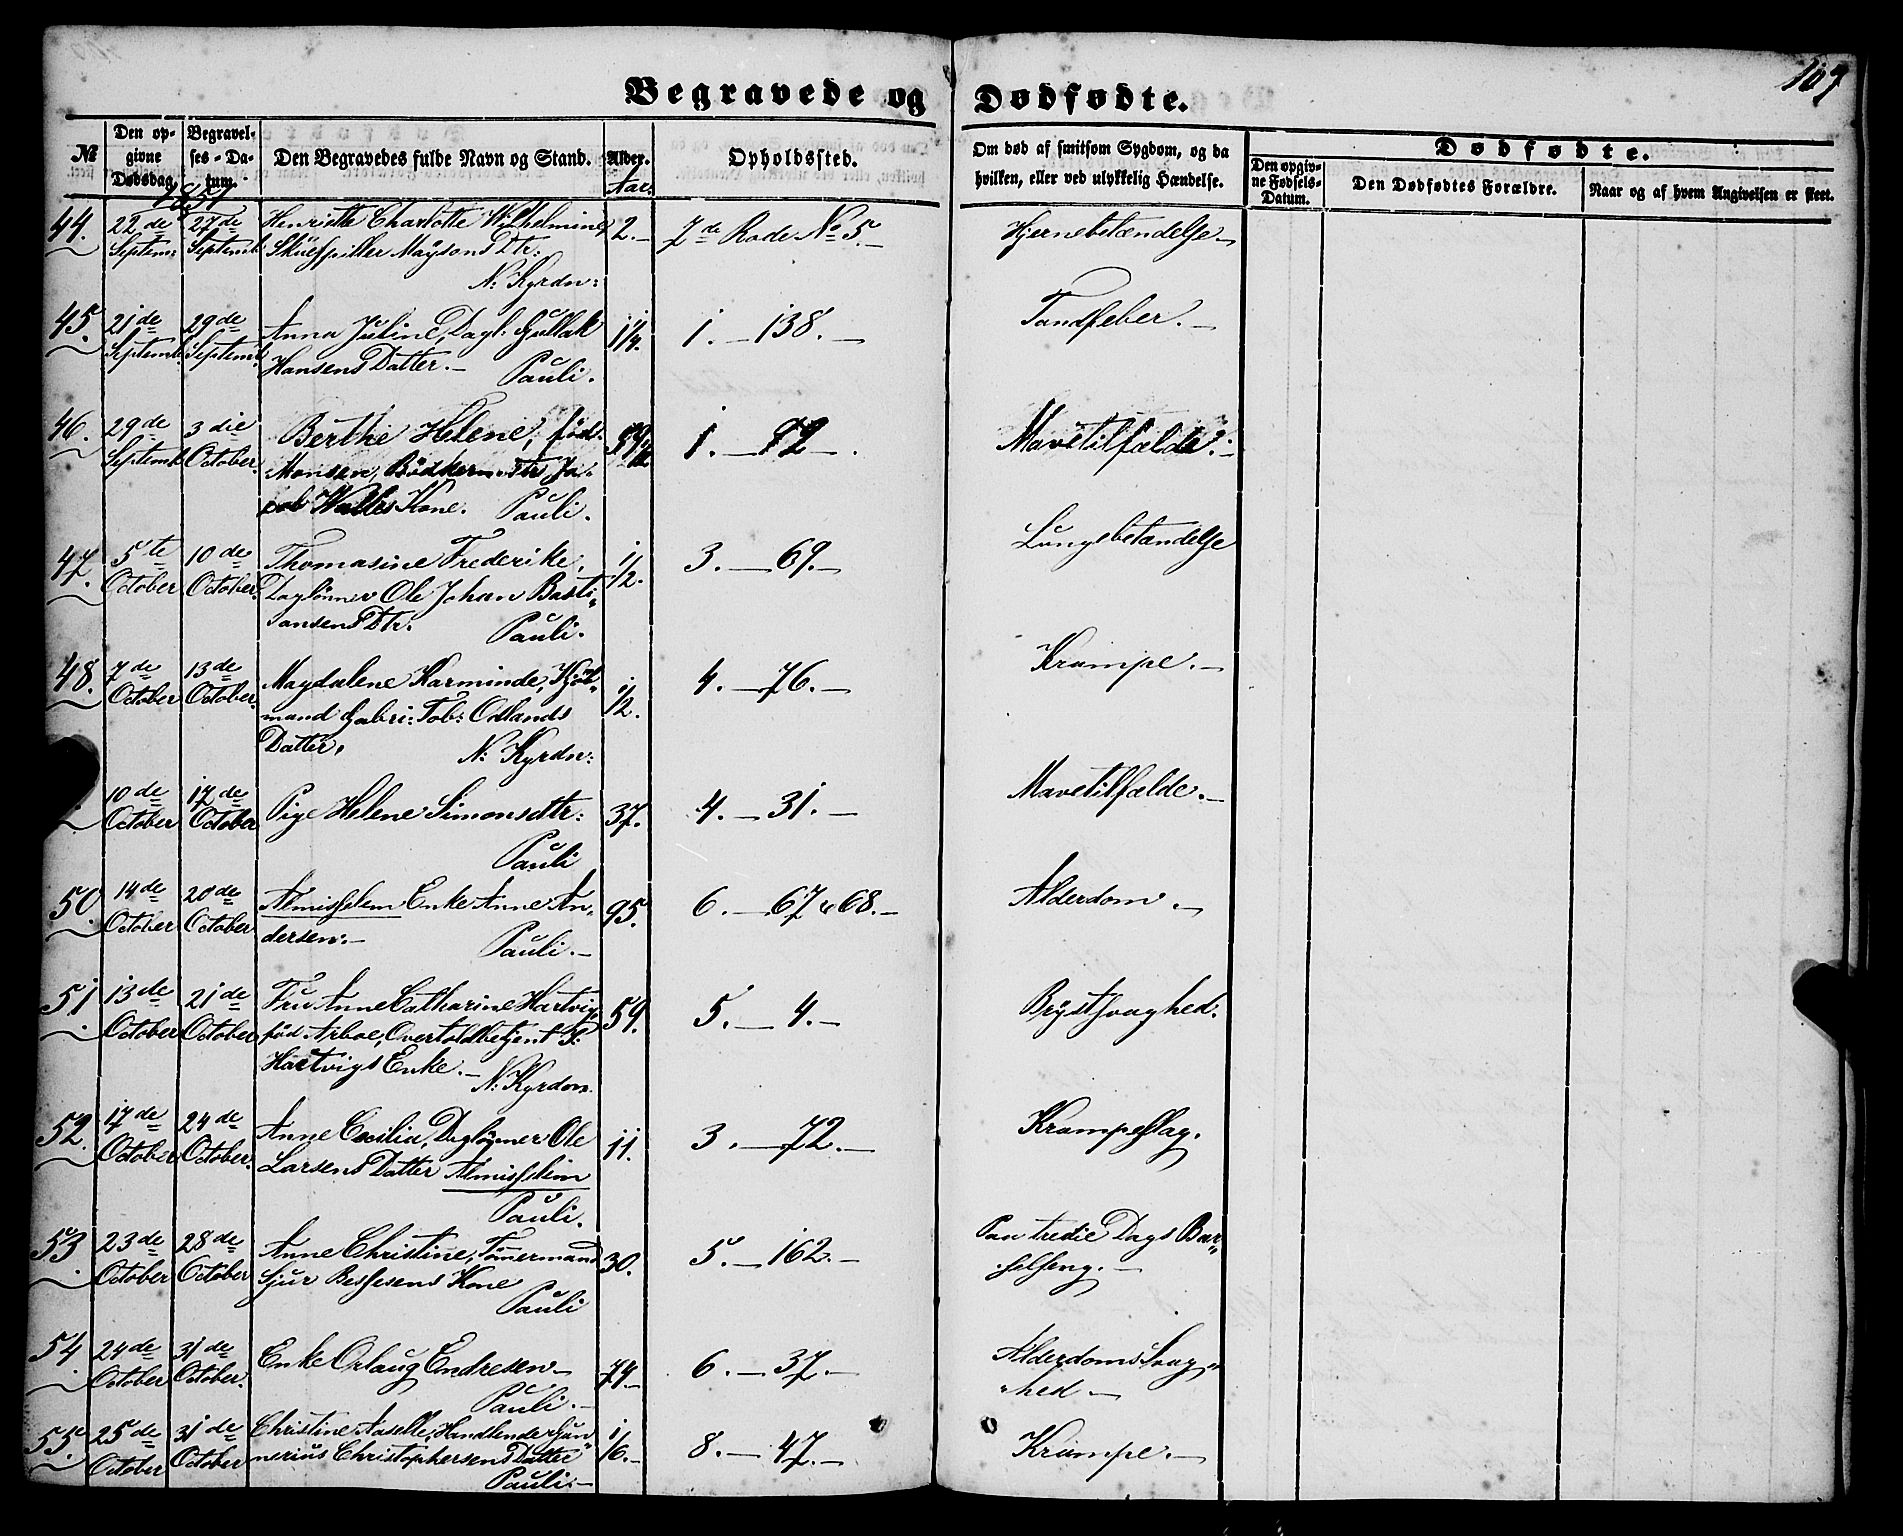 109
Begravede og Dødfødte.
№
Den opgivne Dødsdag.
Begravelses-Datum.
Den Begravedes fulde Navn og Stand.
Alder.
Aar.
Opholdssted.
Om død af smitsom Sygdom, og da hvilken, eller ved ulykkelig Hændelse.
Dødfødte.
Den opgivne Fødsels-Datum.
Den Dødfødtes Forældre.
Naar og af hvem Angivelsen er skeet.
1851
44. 22de Septem: 27de Septemb: Henriette Charlotte Wilhelmine, 2.- 7de Rode No 5.- Hjernebetændelse.-
Skuespiller Maÿsons Dtr:
N: Kyrdn:
45. 21de Septemb. 29de Septemb. Anna Juline, Dagl. Gullak 1/4. 1. - 138. - Tandfeber. -
Hansens Datter. - Pauli.
46. 29de Septemb. 3die October. Berthe Helene, fød. 1. - 72 -. Mavetilfælde. -
Monsen, Bødkermstr Ja-
cob Walles Kone. Pauli.
47. 5te October 10de October. Thomasine Frederike, 1/12. 3. - 69. - Lungebetændelse
Daglönner Ole Johan Basti-
ansens Dtr: Pauli.
48. 7de October 13de October. Magdalene Karminde, Kjöb- 1/12. 4. - 76. - Krampe. -
mand Gabri: Tob: Odlands
Datter, N: Kyrdn:
10de October 17de October Pige Helene Simonsdtr: 37. 4. - 31. - Mavetilfælde. -
Pauli
50. 14de October 20de October Almisselem Enke Anne An- 95. 6. - 67 & 68. - Alderdom. -
dersen. - Pauli. -
51. 13de October 21de October Fru Anne Catharine Hartvig, 59. 5. - 4. - Brÿstsvaghed.
fød Arboe, Overtoldbetjent
Hartvigs Enke. - N: Kyrdon.
52. 17de October 24de October. Anne Cecilia, Daglönner Ole 11. 3. - 72. - Krampeslag.
Larsens Datter Almisselim
Pauli.
53. 23de October 28de October Anne Christine, Tömmermand 30. 5. - 162. - Paa tredie Dags Bar-
Sjur Bessesens Kone selseng. -
Pauli
54. 24de October 31de October. Enke Orlaug Endresen - 74. - 6. - 37. - Alderdoms Svag-
Pauli. - hed -
55. 25de October 31de October Christine Aaselle, Handlende Gun- 1/6. - 8. - 47. - Krampe. -
nerius Christophersens Datter
Pauli. -